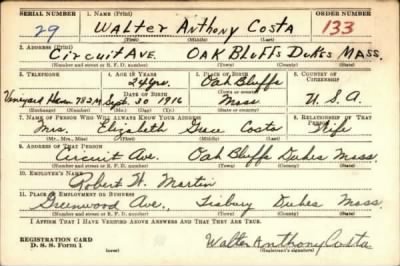 SERIAL NUMBER 1. NAME (Print) ORDER NUMBER
29 Walter Anthony Costa 133
(First) (Middle) (Last)
2. ADDRESS (Print)
Circuit Ave. Oak Bluffs Dukes Mass.
(Number and street or R. F. D. number) (Town) (County) (State)
3. TELEPHONE 4. AGE IN YEARS 5. PLACE OF BIRTH 6. COUNTRY OF CITIZENSHIP
24 yrs. Oak Bluffs
DATE OF BIRTH (Town or county)
Vineyard Haven 782M Sept. 30 1916 Mass U.S.A.
(Exchange) (Number) (Mo.) (Day) (Yr.) (State or country)
7. NAME OF PERSON WHO WILL ALWAYS KNOW YOUR ADDRESS 8. RELATIONSHIP OF THAT PERSON
Mrs. Elizabeth Grace Costa Wife
(Mr., Mrs., Miss) (First) (Middle) (Last)
9. ADDRESS OF THAT PERSON
Circuit Ave. Oak Bluffs Dukes Mass.
(Number and street or R. F. D. number) (Town) (County) (State)
10. EMPLOYER'S NAME
Robert W. Martin
11. PLACE OF EMPLOYMENT OR BUSINESS
Greenwood Ave., Tisbury Dukes Mass
(Number and street or R. F. D. number) (Town) (County) (State)
I AFFIRM THAT I HAVE VERIFIED ABOVE ANSWERS AND THAT THEY ARE TRUE.
REGISTRATION CARD
D. S. S. Form 1 (over) Walter Anthony Costa
(Registrant's signature)